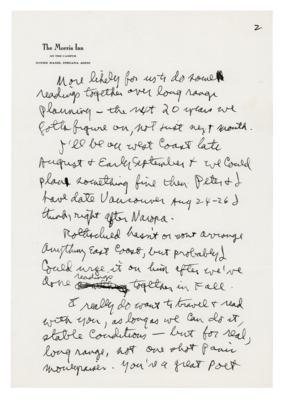 2
The Morris Inn
ON THE CAMPUS
NOTRE DAME, INDIANA 46556
More likely for us to do some
readings together over long range
planning — the next 20 years we
gotta figure on, not just next month.
I'll be on west Coast late
August & Early September & we could
plan something fine then. Peter & I
have date Vancouver Aug 24-26 I
think, right after Naropa.
Rothschild hasn't or wont arrange
anything East Coast, but probably I
Could urge it on him after we've
done readings together in Fall.
I really do want to travel & read
with you, as long as we can do it,
stable Conditions — but for real,
long range, not one shot panic
moneyraiser. You're a great Poet